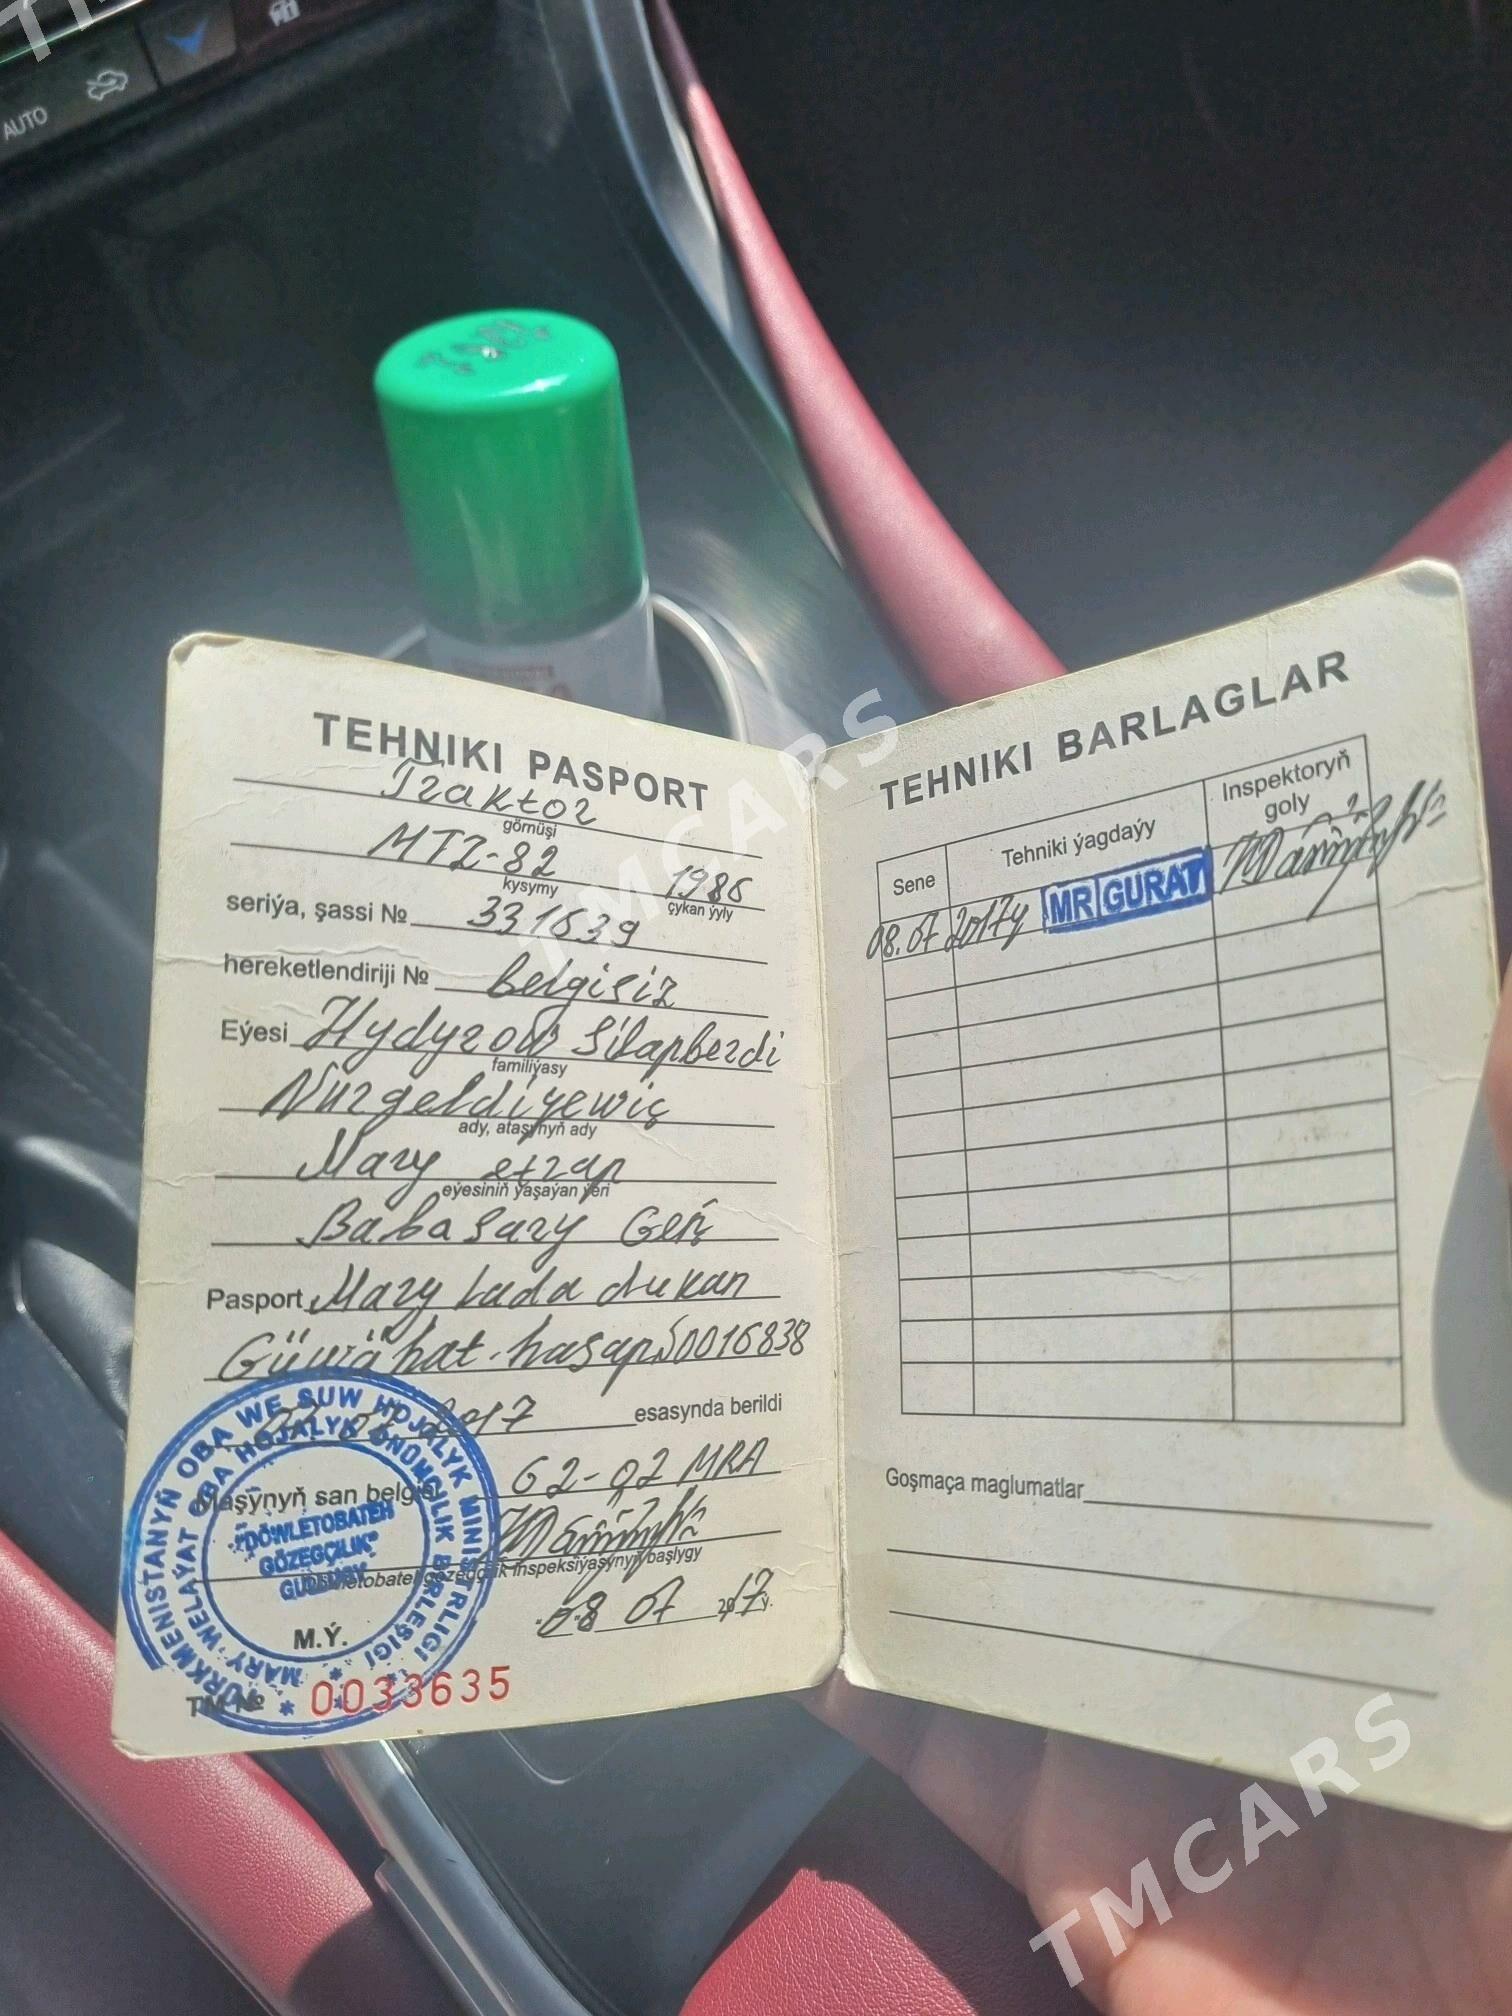 AUTO
TEHNIKI PASPORT
Traktor
görnüşi
MTZ-82 1986
kysymy çykan ýyly
seriýa, şassi № 331639
hereketlendiriji № belgisiz
Eýesi Hydyrow Silapberdi
familiýasy
Nurgeldiýewiç
ady, atasynyň ady
Mary etrap
eýesiniň ýaşaýan ýeri
Babasary Geň
Pasport Mary Lada dukan
Güwä hat-hasap 0016838
07 2017 esasynda berildi
Maşynyň san belgisi 62-02 MRA
Döwletobatel gözegçilik inspeksiýasynyň başlygy
08 07 2017ý.
M.Ý.
TM № 0033635
TÜRKMENISTANYŇ OBA WE SUW HOJALYK MINISTRLIGI
MARY WELAÝAT OBA HOJALYK ÖNÜMÇILIK BIRLEŞIGI
"DÖWLETOBATEH
GÖZEGÇILIK"
TEHNIKI BARLAGLAR
Sene Tehniki ýagdaýy Inspektoryň goly
08.07 2017ý MR GURAT
Goşmaça maglumatlar
TMCARS
TMCARS